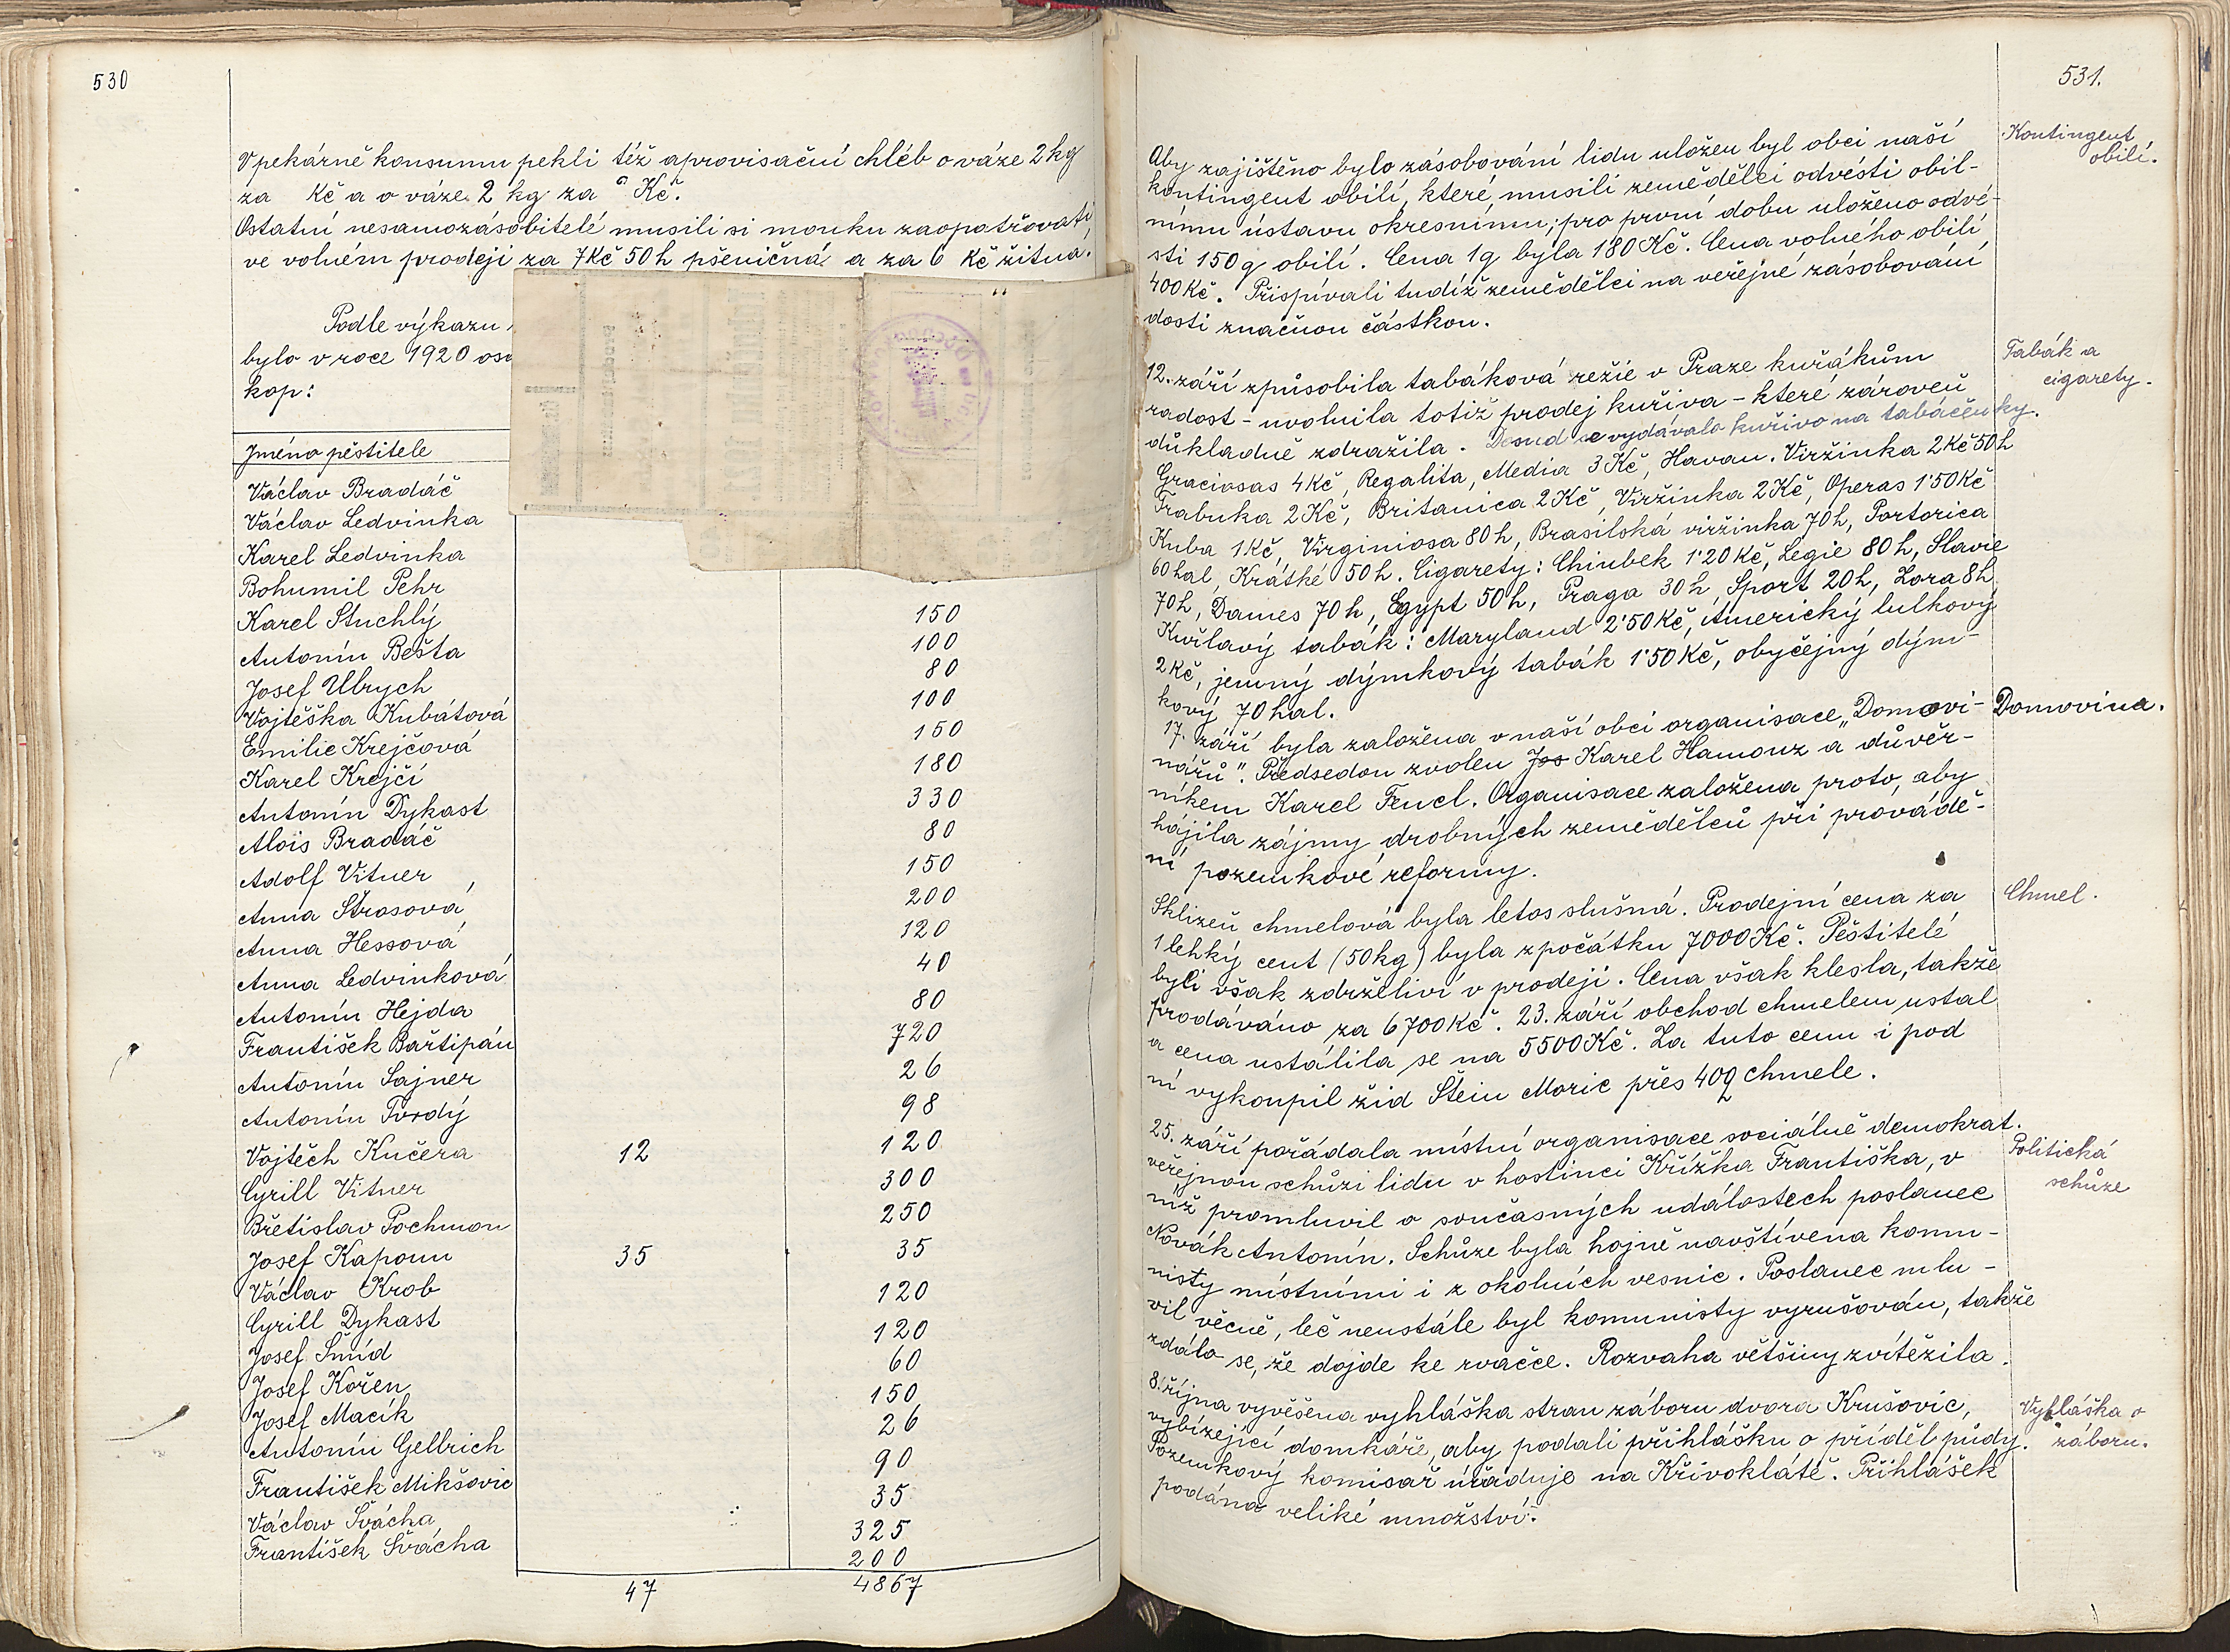 530
V pekárně konsumu pekli též aprovisační chléb o váze 2 kg
za Kč a o váze 2 kg za 6 Kč.
Ostatní nesamozásobitelé musili si mouku zaopatřovati
ve volném prodeji za 7 Kč 50 h pšeničná a za 6 Kč žitná.
Podle výkazu
bylo v roce 1920
kop:
Jméno pěstitele
Václav Bradáč
Václav Ledvinka
Karel Ledvinka
Bohumil Pehr
Karel Stuchlý 150
Antonín Bešta 100
Josef Ulrych 80
Vojtěška Kubátová 100
Emilie Krejčová 150
Karel Krejčí 180
Antonín Dykast 330
Alois Bradáč 80
Adolf Vitner 150
Anna Štrosová 200
Anna Hessová 120
Anna Ledvinková 40
Antonín Hejda 80
František Bařtipán 720
Antonín Sajner 26
Antonín Tvrdý 98
Vojtěch Kučera 12 120
Cyrill Vitner 300
Břetislav Pochmon 250
Josef Kapoun 35 35
Václav Krob 120
Cyrill Dykast 120
Josef Šmíd 60
Josef Kořen 150
Josef Macík 26
Antonín Gellrich 90
František Mikšovic 35
Václav Švácha 325
František Švácha 200
47 4867
531.
Kontingent
obilí.
Aby zajištěno bylo zásobování lidu uložen byl obci naší
kontingent obilí, které musili zemědělci odvésti obil-
nímu ústavu okresnímu; pro první dobu uloženo odvé-
sti 150 q obilí. Cena 1q byla 180 Kč. Cena volného obilí
400 Kč. Přispívali tudíž zemědělci na veřejné zásobování
dosti značnou částkou.
Tabák a
cigarety.
12. září způsobila tabáková režie v Praze kuřákům
radost - uvolnila totiž prodej kuřiva - které zároveň
důkladně zdražila. Dosud se vydávalo kuřivo na tabačenky.
Graciosas 4 Kč, Regalita, Media 3 Kč, Havan. Viržinka 2 Kč 50 h
Trabuka 2 Kč, Britanica 2 Kč, Viržinka 2 Kč, Operas 1'50 Kč
Kuba 1 Kč, Virginiosa 80 h, Brasilská viržinka 70 h, Portorica
60 hal, Krátké 50 h. Cigarety: Chinbek 1'20 Kč, Legie 80 h, Slavie
70 h, Dames 70 h, Egypt 50 h, Praga 30 h, Sport 20 h, Zora 8 h
Kuřlavý tabák: Maryland 2'50 Kč, Americký lulkový
2 Kč, jemný dýmkový tabák 1'50 Kč, obyčejný dým-
kový 70 hal.
Domovina.
17. září byla založena v naší obci organisace „Domovi-
nářů". Předsedou zvolen Jos Karel Hamouz a důvěr-
níkem Karel Fencl. Organisace založena proto, aby
hájila zájmy drobných zemědělců při provádě-
ní pozemkové reformy.
Chmel.
Sklizeň chmelová byla letos slušná. Prodejní cena za
1 lehký cent (50 kg) byla zpočátku 7000 Kč. Pěstitelé
byli však zdrželiví v prodeji. Cena však klesla, takže
prodáváno za 6700 Kč. 23. září obchod chmelem ustal
a cena ustálila se na 5500 Kč. Za tuto cenu i pod
ní vykoupil žid Štein Moric přes 40q chmele.
25. září pořádala místní organisace sociálně demokrat.
Politická
schůze
veřejnou schůzi lidu v hostinci Křížka Františka, v
níž promluvil o současných událostech poslanec
Novák Antonín. Schůze byla hojně navštívena komu-
nisty místními i z okolních vesnic. Poslanec mlu-
vil věcně, leč neustále byl komunisty vyrušován, takže
zdálo se, že dojde ke rvačce. Rozvaha většiny zvítězila.
Vyhláška o
záboru.
8. října vyvěšena vyhláška stran záboru dvora Krušovic,
vybízející domkáře, aby podali přihlášku o příděl půdy.
Pozemkový komisař úřaduje na Křivoklátě. Přihlášek
podáno veliké množství.